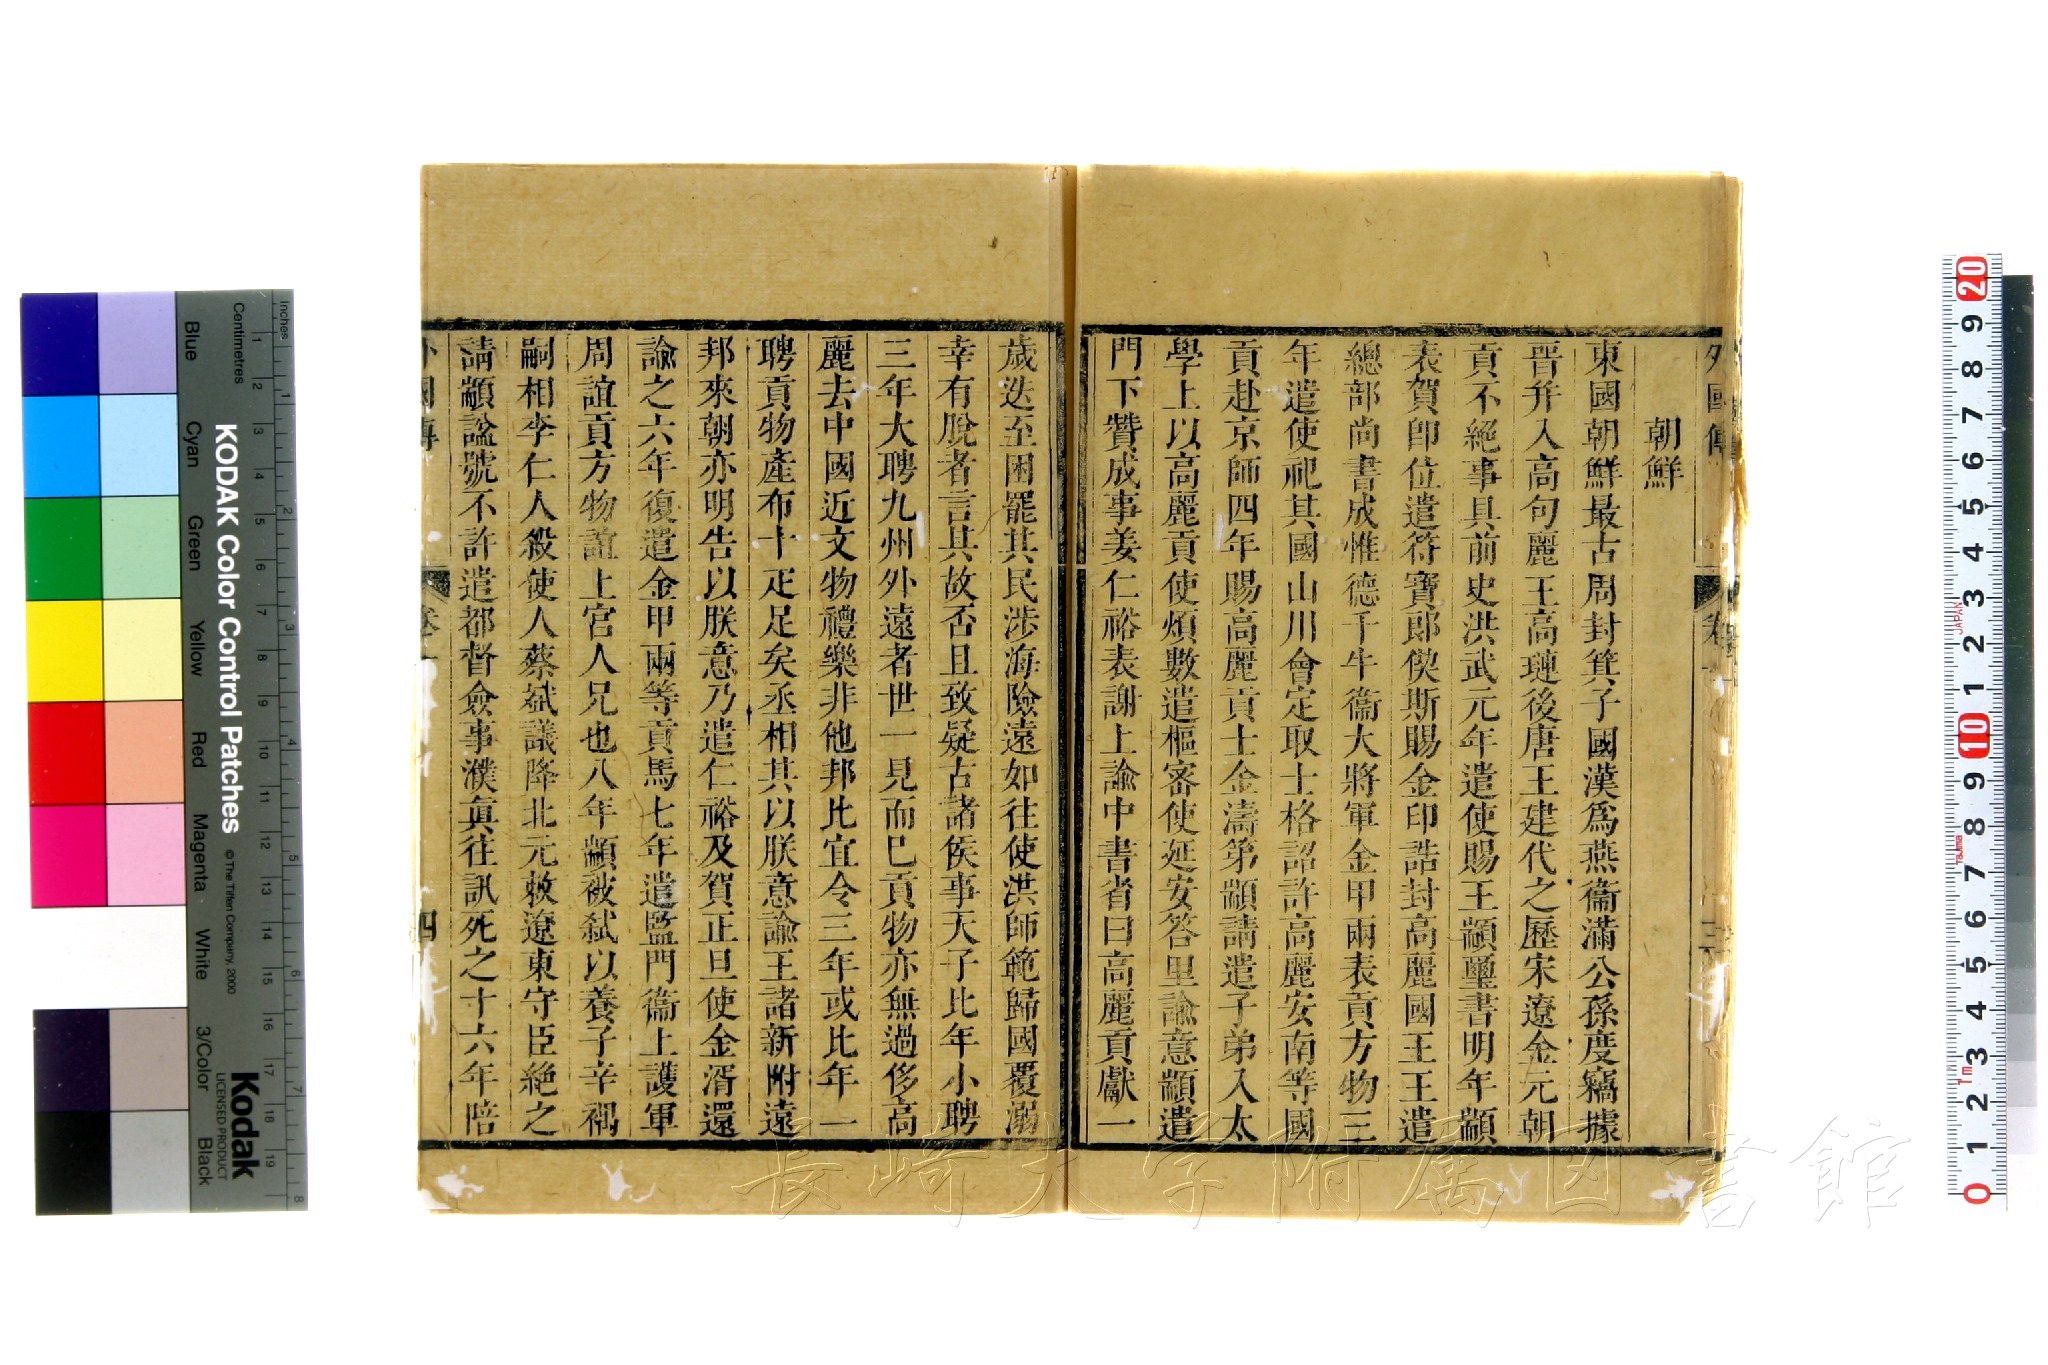 外國傳 卷一
朝鮮
東國朝鮮最古周封箕子國漢爲燕衞滿公孫度竊據
晋幷入高句麗王高璉後唐王建代之歷宋遼金元朝
貢不絕事具前史洪武元年遣使賜王顓璽書明年顓
表賀卽位遣符寶郞偰斯賜金印誥封高麗國王王遣
總部尚書成惟德千牛衞大將軍金甲兩表貢方物三
年遣使祀其國山川會定取士格詔許高麗安南等國
貢赴京師四年賜高麗貢士金濤第顓請遣子弟入太
學上以高麗貢使煩數遣樞密使延安答里諭意顓遣
門下贊成事姜仁裕表謝上諭中書省曰高麗貢獻一
歲迭至困罷其民涉海險遠如往使洪師範歸國覆溺
幸有脫者言其故否且致疑古諸侯事天子比年小聘
三年大聘九州外遠者世一見而已貢物亦無過侈高
麗去中國近文物禮樂非他邦比宜令三年或比年一
聘貢物產布十疋足矣丞相其以朕意諭王諸新附遠
邦來朝亦明告以朕意乃遣仁裕及賀正旦使金湑還
諭之六年復遣金甲兩等貢馬七年遣監門衞上護軍
周誼貢方物誼上宮人兄也八年顓被弑以養子辛禑
嗣相李仁人殺使人蔡斌議降北元敕遼東守臣絕之
請顓諡號不許遣都督僉事濮眞往訊死之十六年陪
外國傳 卷一 四
KODAK Color Control Patches
© The Tiffen Company, 2000
Kodak
LICENSED PRODUCT
Inches
Centimetres
Blue
Cyan
Green
Yellow
Red
Magenta
White
3/Color
Black
1 2 3 4 5 6 7 8
1 2 3 4 5 6 7 8 9 10 11 12 13 14 15 16 17 18 19
20 9 8 7 6 5 4 3 2 1 10 9 8 7 6 5 4 3 2 1 0
JAPAN
Tajima
1m
長崎大学附属図書館